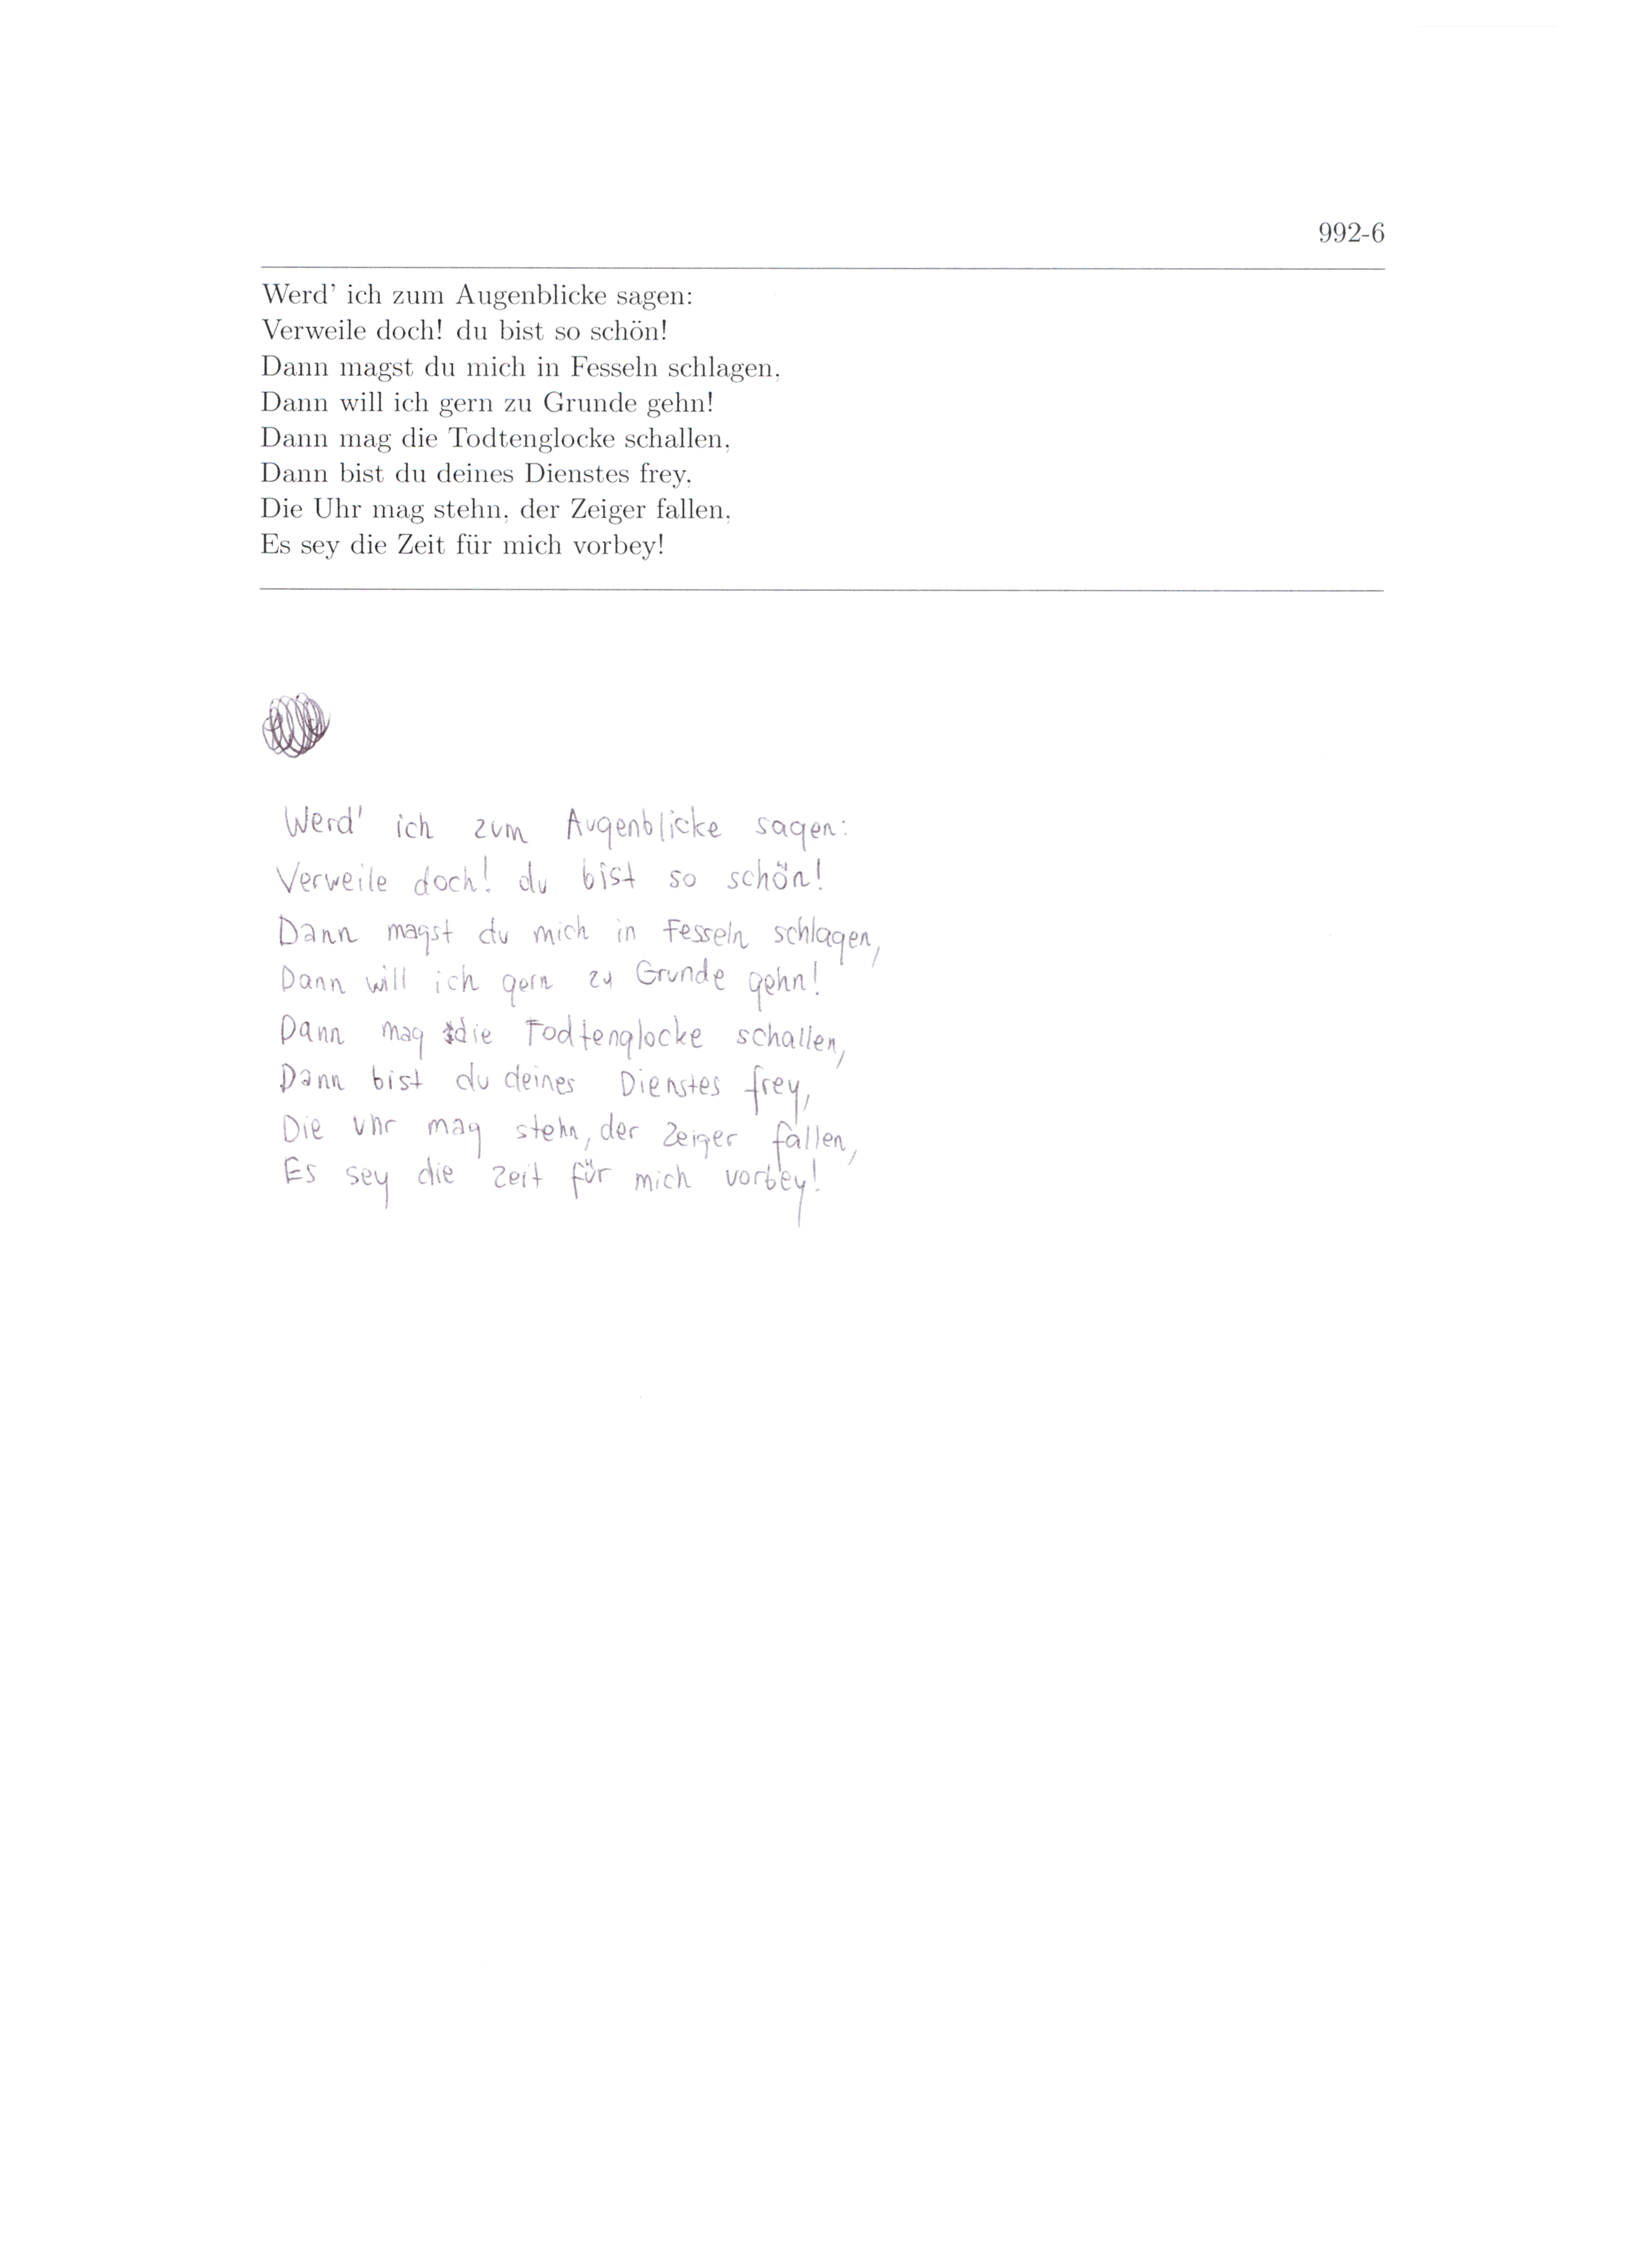 992-6
Werd' ich zum Augenblicke sagen:
Verweile doch! du bist so schön!
Dann magst du mich in Fesseln schlagen,
Dann will ich gern zu Grunde gehn!
Dann mag die Todtenglocke schallen,
Dann bist du deines Dienstes frey,
Die Uhr mag stehn, der Zeiger fallen,
Es sey die Zeit für mich vorbey!
Werd' ich zum Augenblicke sagen:
Verweile doch! du bist so schön!
Dann magst du mich in Fesseln schlagen,
Dann will ich gern zu Grunde gehn!
Dann mag die Todtenglocke schallen,
Dann bist du deines Dienstes frey,
Die Uhr mag stehn, der Zeiger fallen,
Es sey die Zeit für mich vorbey!